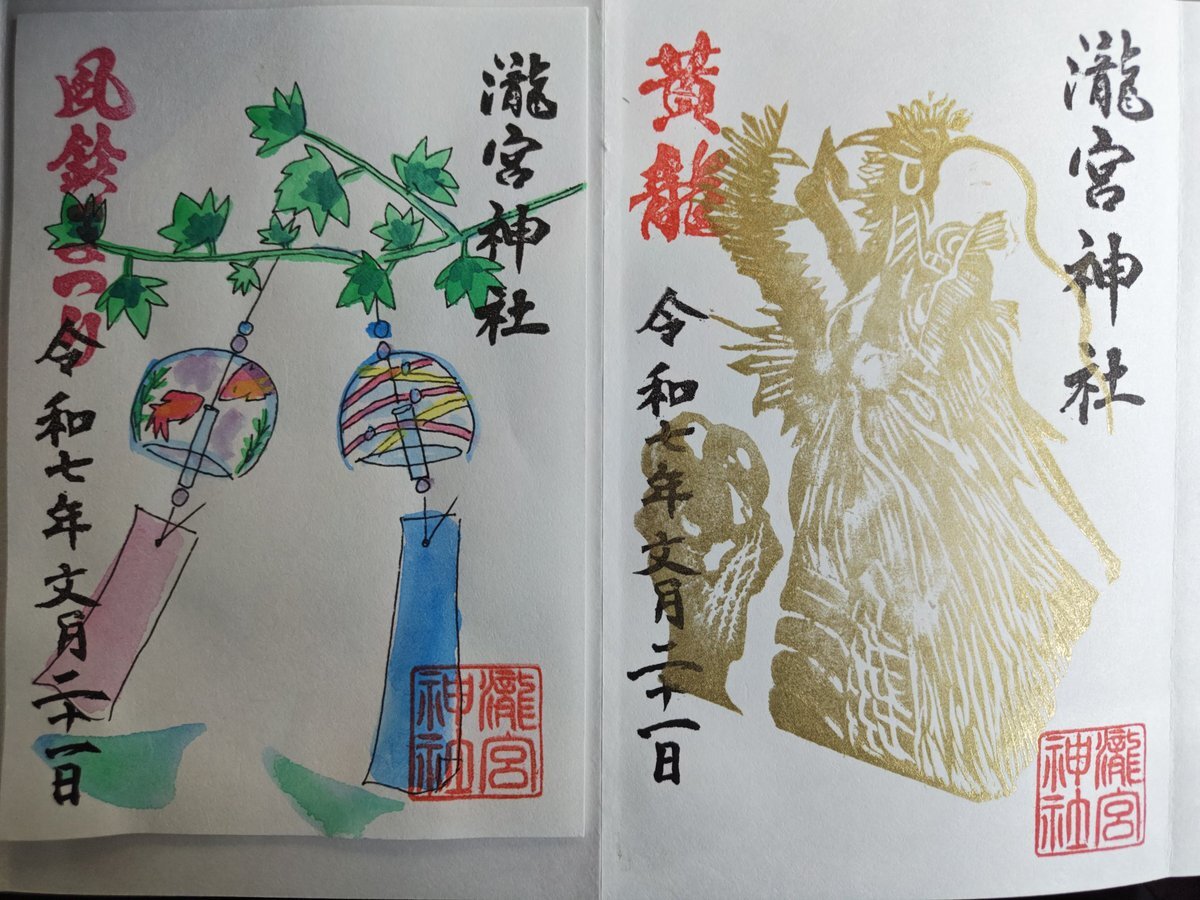 瀧宮神社
風鈴まつり
令和七年文月二十一日
瀧宮神社
瀧宮神社
黄龍
令和七年文月二十一日
瀧宮神社